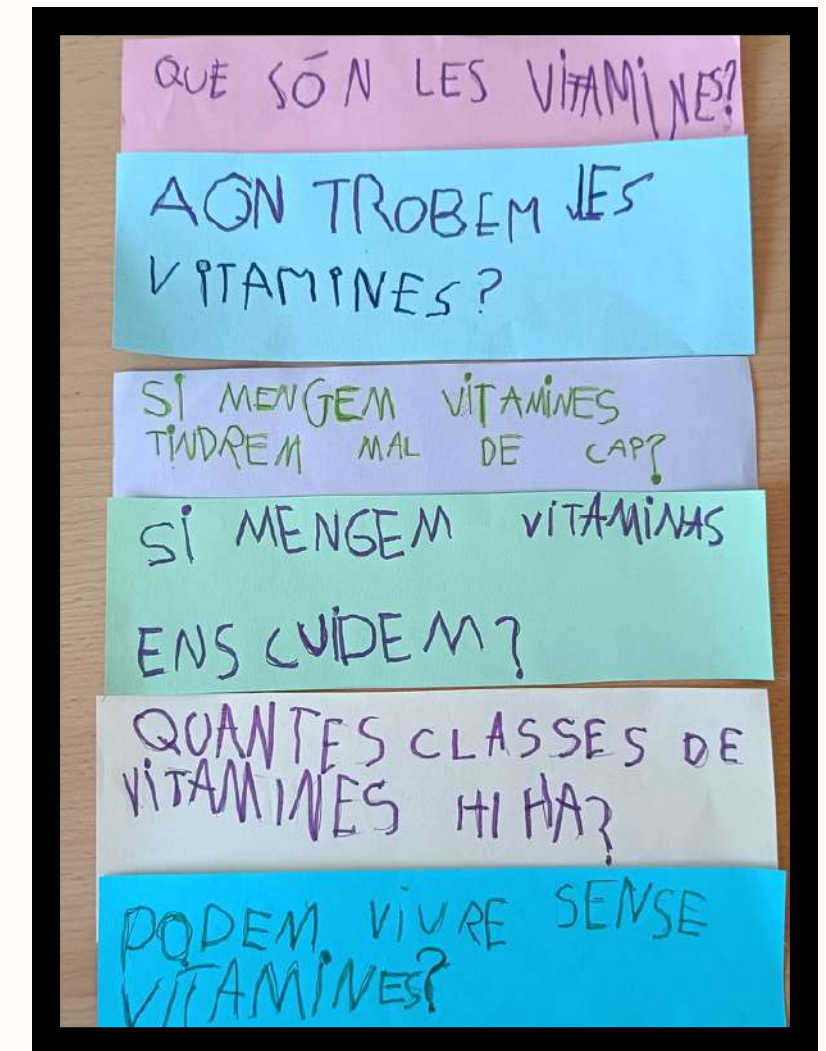 QUE SÓN LES VITAMINES?
AÓN TROBEM LES
VITAMINES?
SI MENGEM VITAMINES
TINDREM MAL DE CAP?
SI MENGEM VITAMINAS
ENS CUIDEM?
QUANTES CLASSES DE
VITAMINES HI HA?
PODEM VIURE SENSE
VITAMINES?